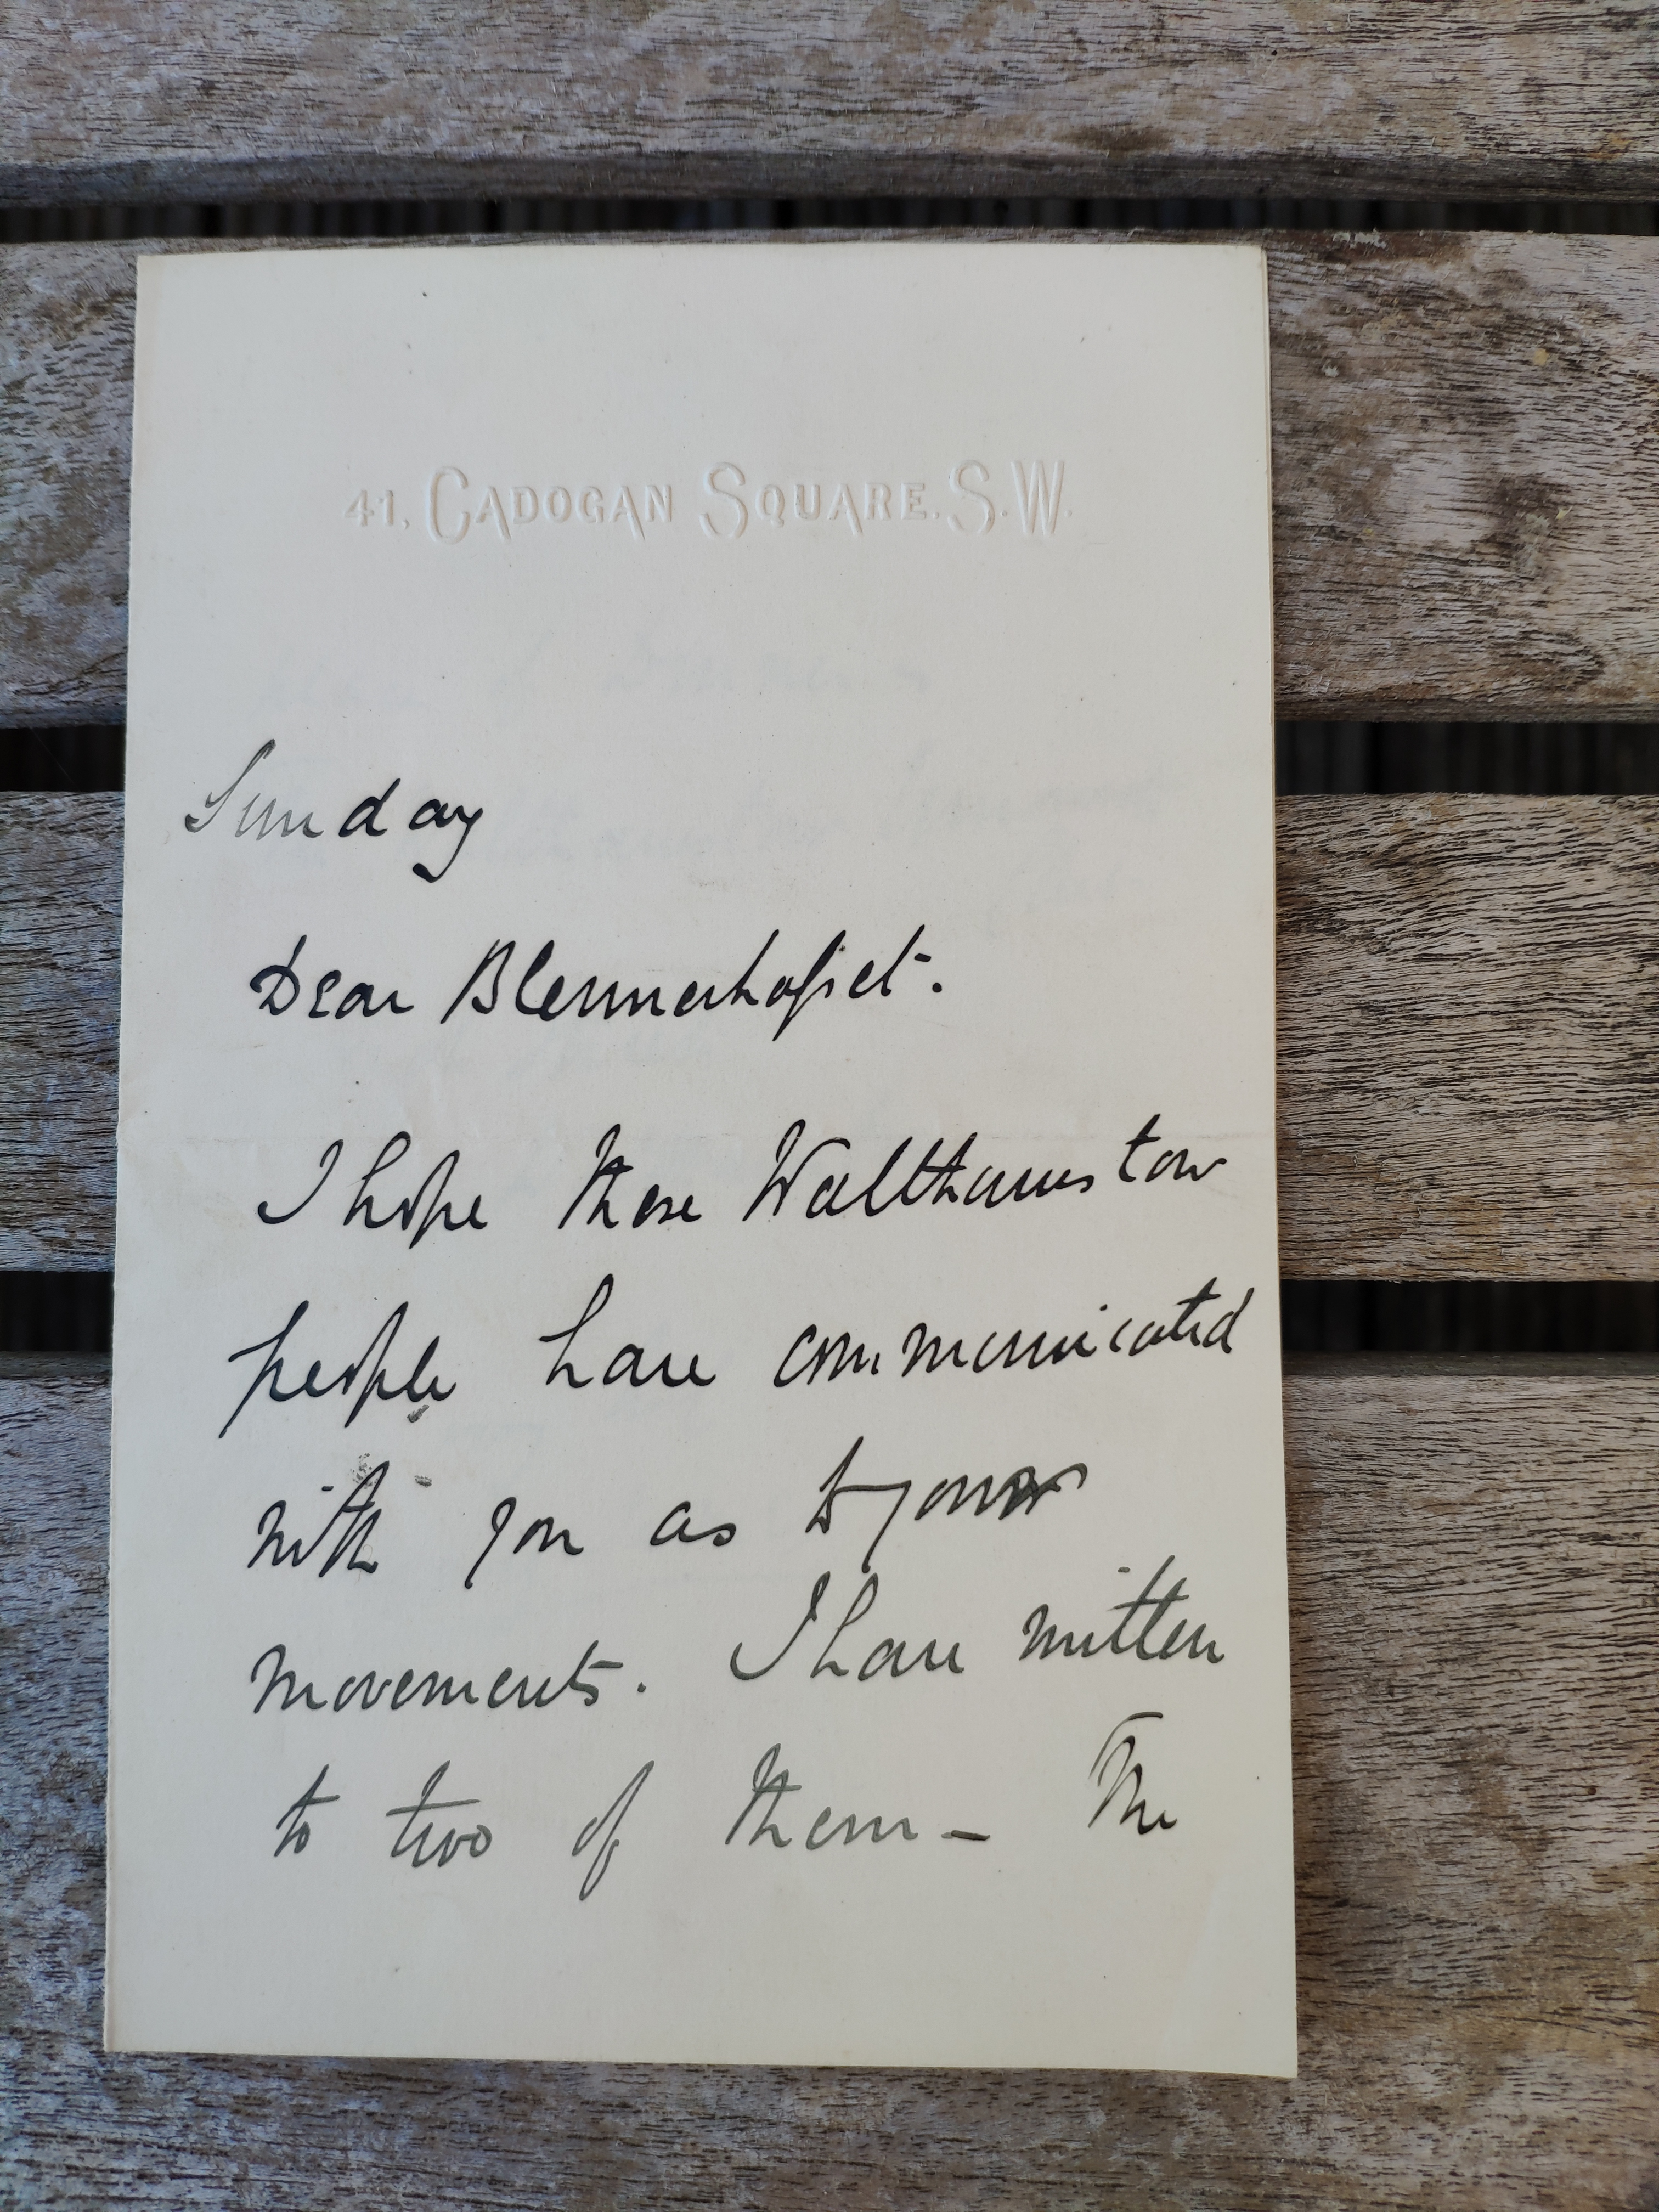 41, CADOGAN SQUARE. S.W.
Sunday
Dear Blennerhasset.
I hope those Walthamstow
people have communicated
with you as to your
movements. I have written
to two of them – The